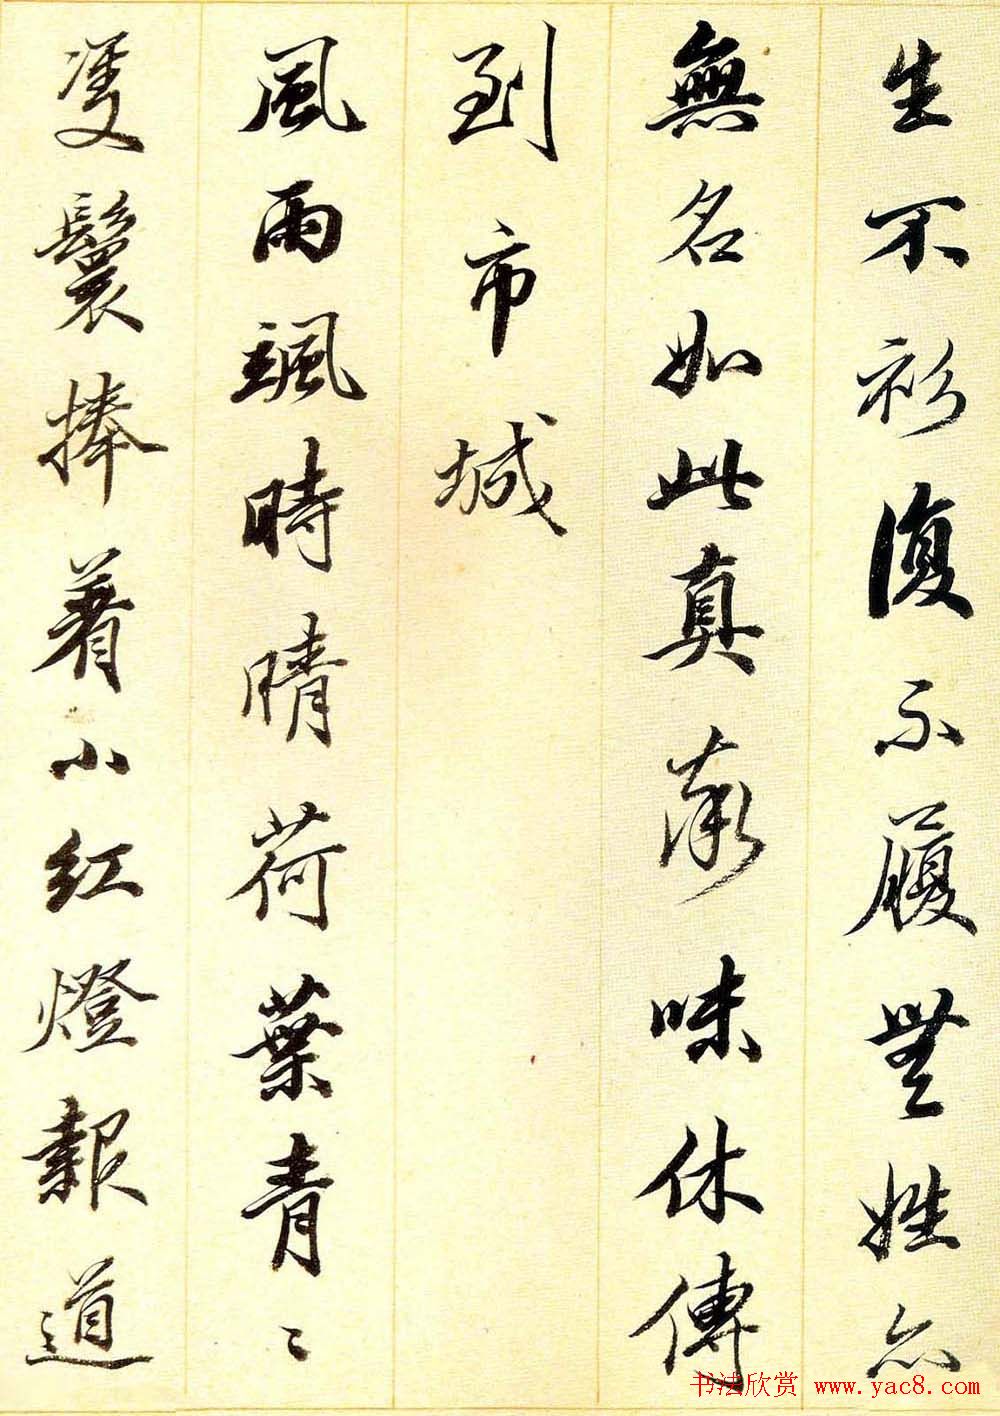 生不衫復不履無姓亦
無名如此真承味休傳
到市城
風雨颯時晴荷葉青〻
雙鬟捧着小紅燈報道
书法欣赏 www.yac8.com